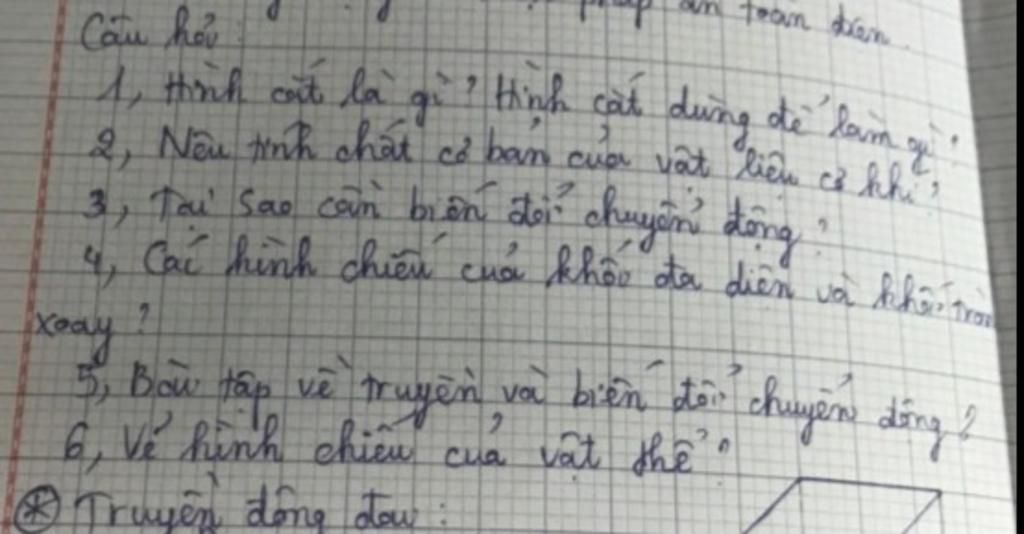 pháp an toàn điện.
Câu hỏi:
1, Hình cắt là gì? Hình cắt dùng để làm gì?
2, Nêu tính chất cơ bản của vật liệu cơ khí?
3, Tại sao cần biến đổi chuyển động?
4, Các hình chiếu của khối đa diện và khối tròn
xoay?
5, Bài tập về truyền và biến đổi chuyển động?
6, Vẽ hình chiếu của vật thể?
* Truyền động đai: